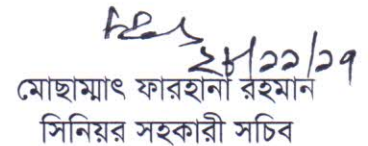 ২৮/১১/১৭
মোছাম্মাৎ ফারহানা রহমান
সিনিয়র সহকারী সচিব